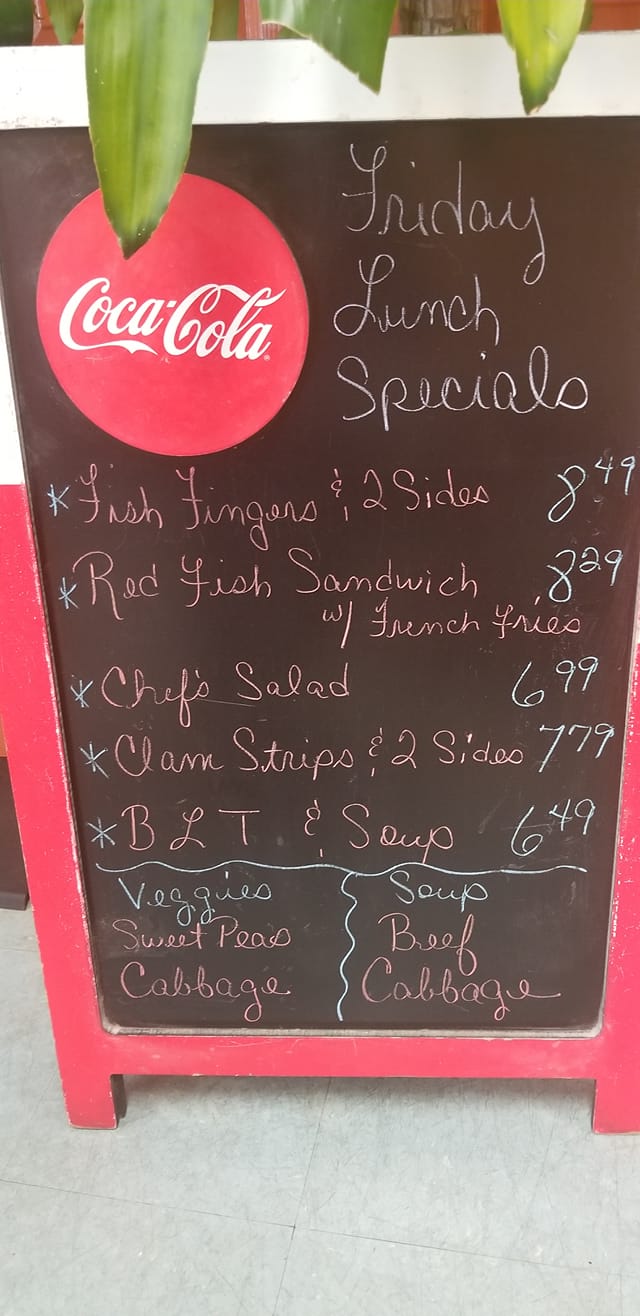 Coca-Cola
Friday
Lunch
Specials
* Fish Fingers & 2 Sides 8 49
* Red Fish Sandwich 8 29
w/ French Fries
* Chef's Salad 6 99
* Clam Strips & 2 Sides 7 79
* B L T & Soup 6 49
Veggies
Sweet Peas
Cabbage
Soup
Beef
Cabbage